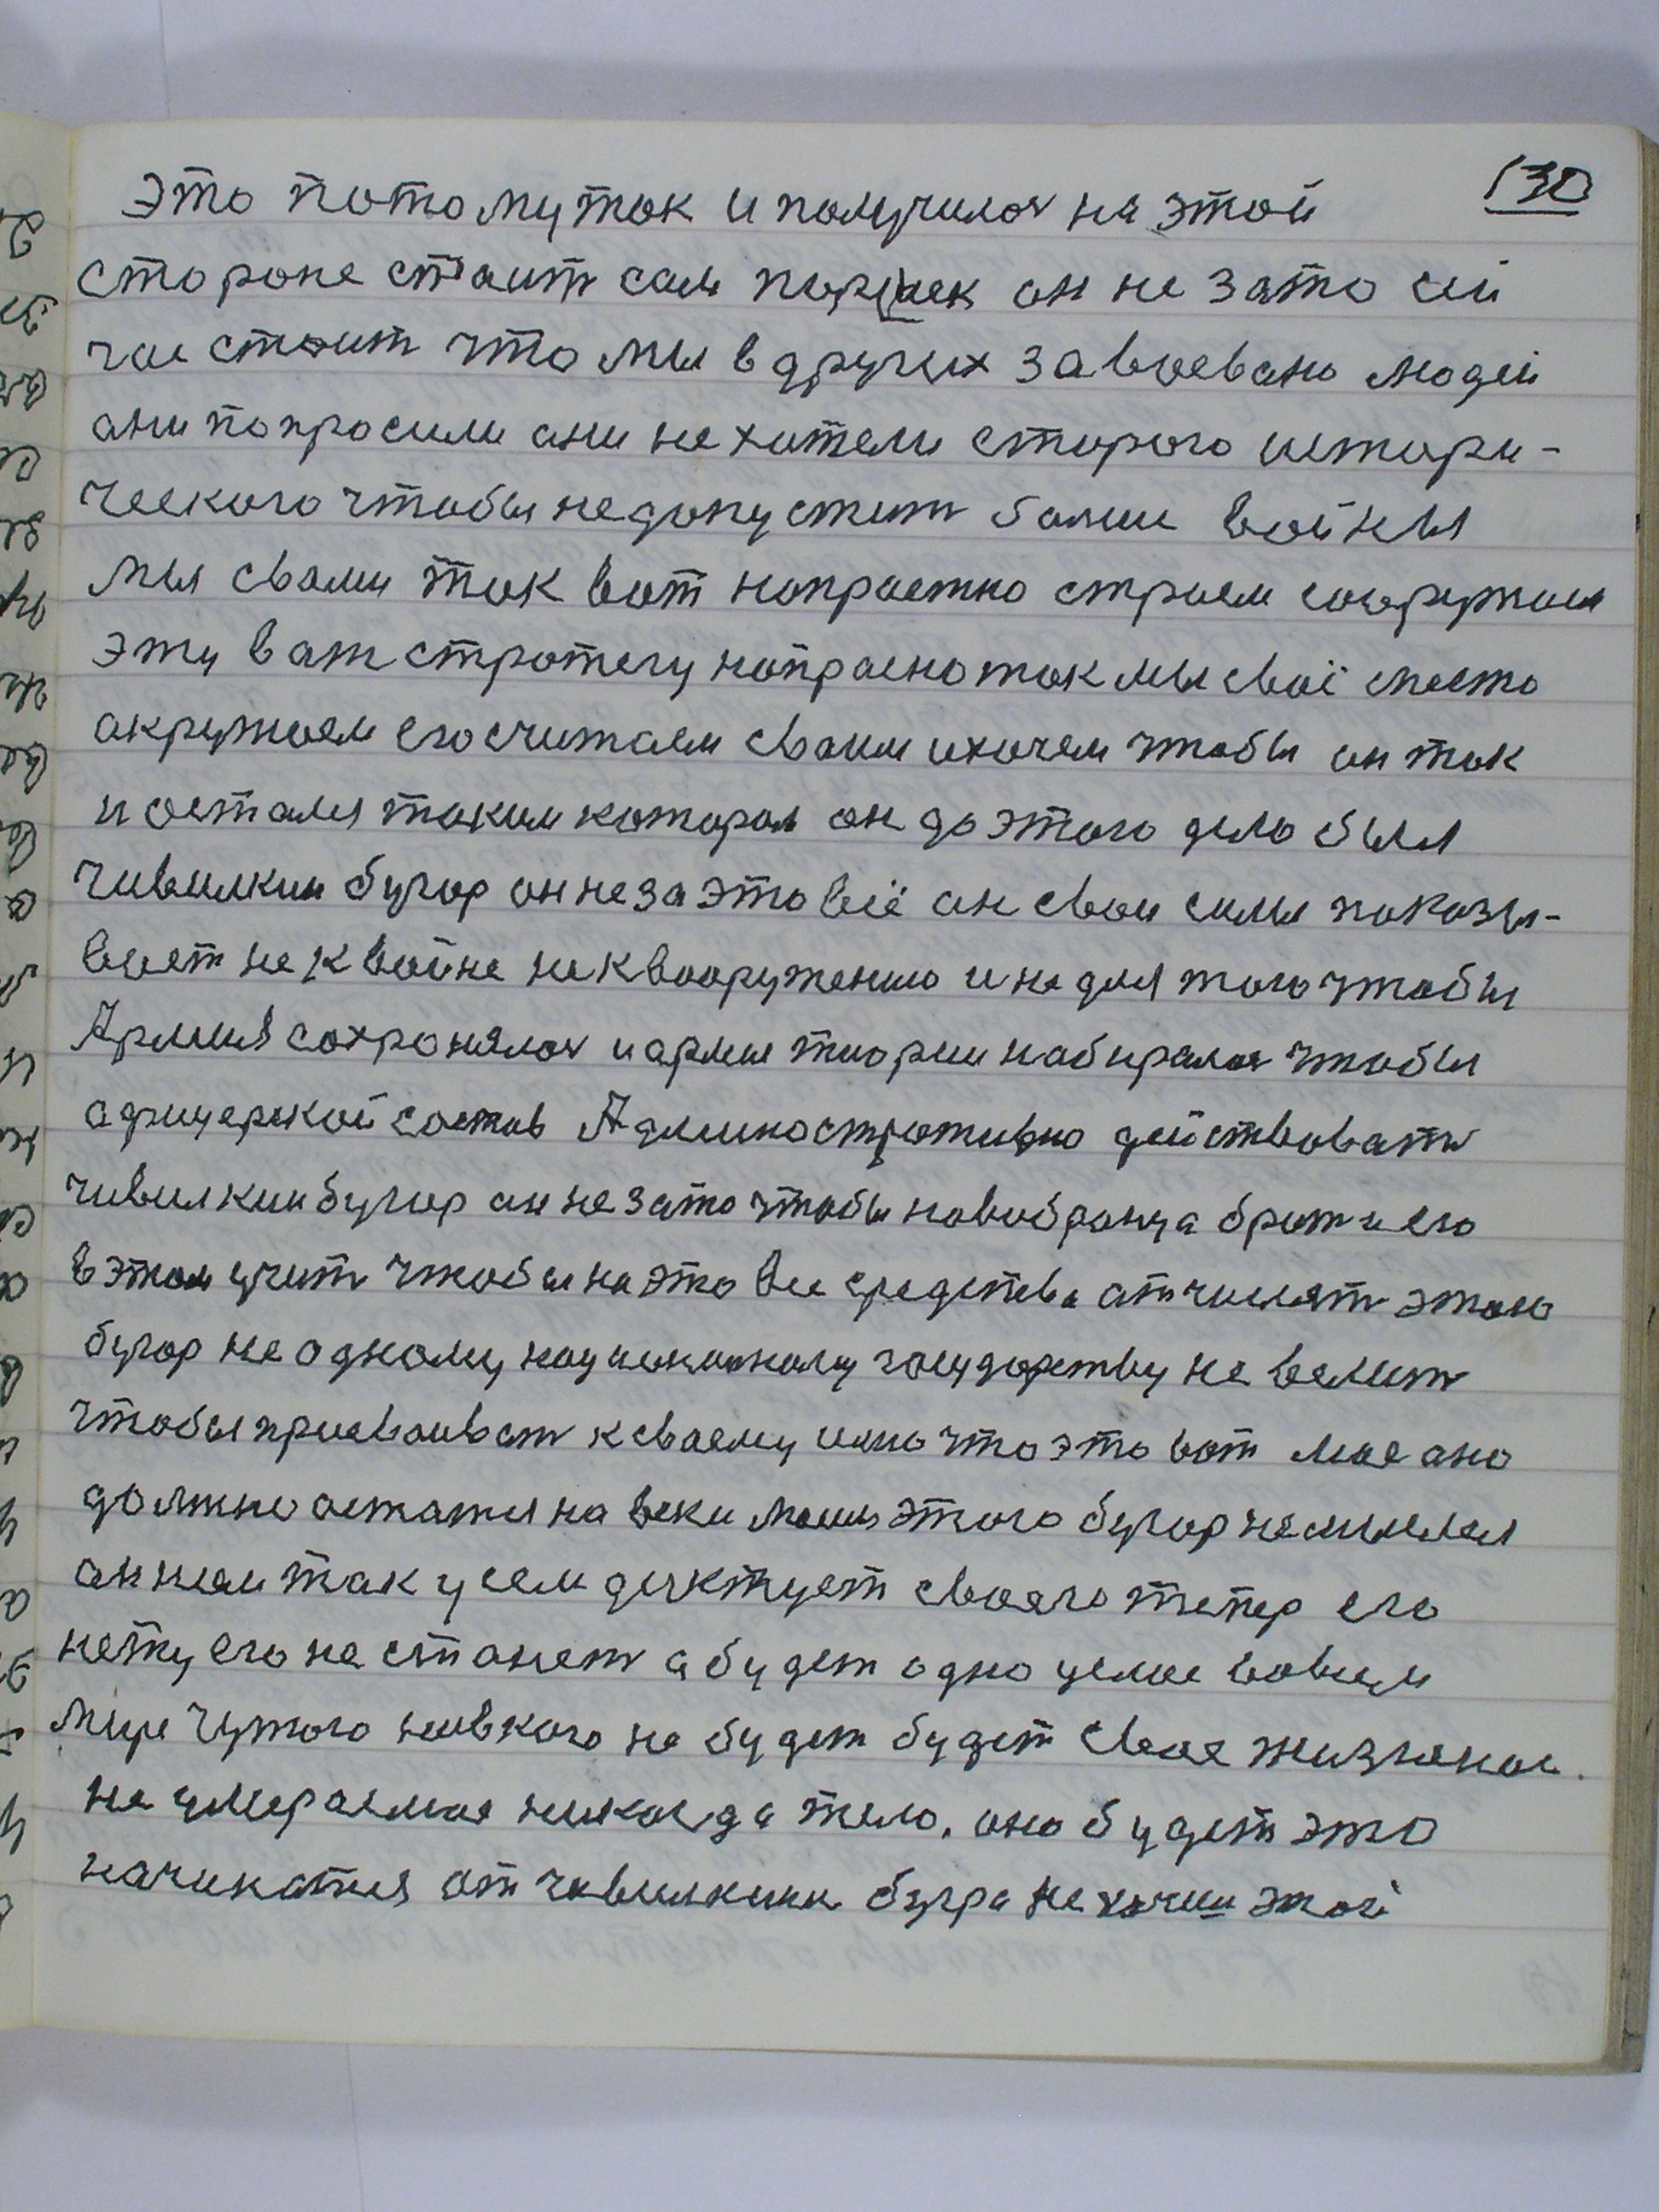 130
Это потому так и получилось на этой
стороне стаит сам паршек он не зато сей
час стоит что мы в других завоевано людей
ани попросили ани не хатели старого истори-
ческого чтобы недопустить болше войны
мы свами так вот напрастно строем сооружаем
эту ваш стротегу напрасно так мы своё место
акружаем его считаем своим ихочем чтобы он так
и остался таким каторой он до этого дела был
чивилкин бугор он не за это всё он свои силы показы-
вает не к войне не к вооружению и не для того чтобы
Армия сохронялась и армия тиории набиралась чтобы
афицерской состав Админостротивно действовать
чивилкин бугор он не зато чтобы новобранца брат и его
в этом учить чтобы на это все средства отчислят этого
бугор не одному национальному государству не велит
чтобы присваиват к своему имю что это вот мае ано
должно астатся на веки маим этого бугор не мыслил
он нам так усем дектует своего тепер его
нету его не станет а будет одно целое вовсем
мире чужого никого не будет будет свое жизненое
не умераемое никогда тело. оно будет это
начинатся от чивилкина бугра не хочеш этой